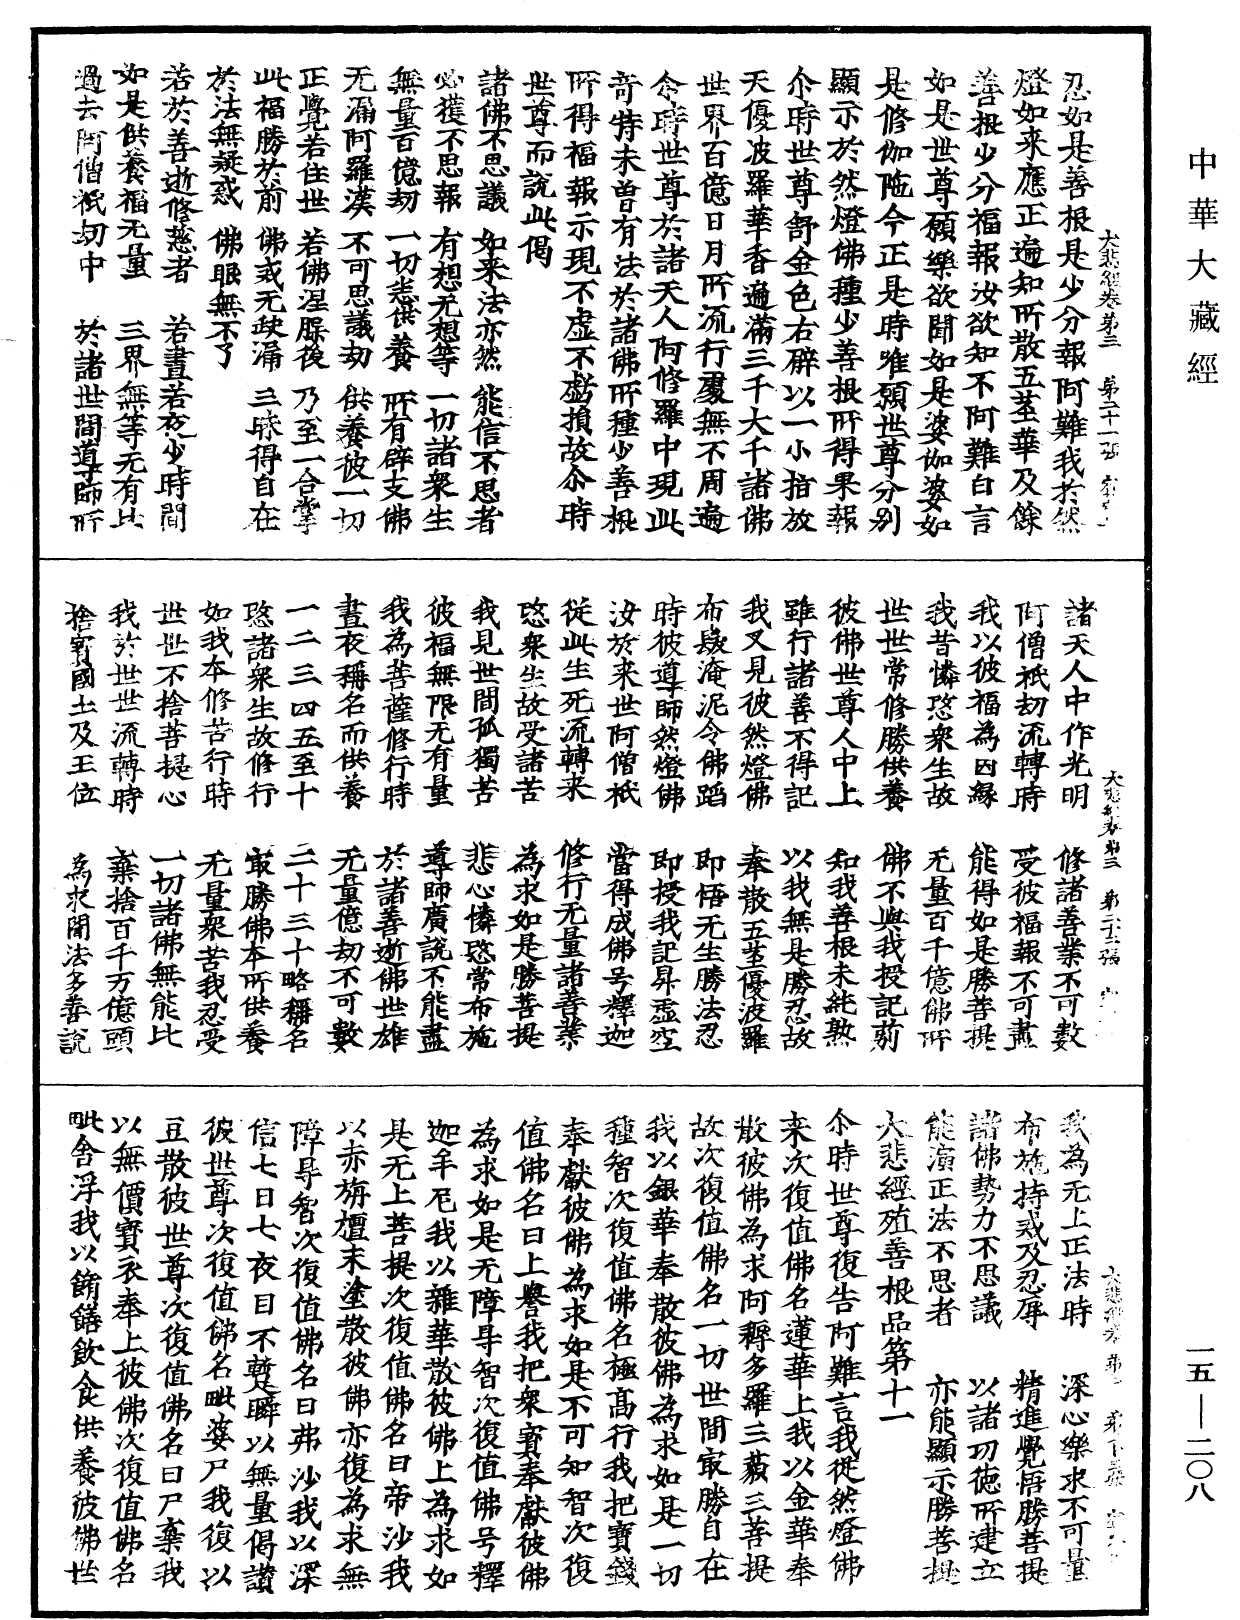 中華大藏經
大悲經卷第三 第二十一張
忍如是善根是少分報阿難我於然
燈如来應正遍知所散五莖華及餘
善根少分福報汝欲知不阿難白言
如是世尊願樂欲聞如是婆伽婆如
是修伽陁今正是時唯願世尊分别
顯示於然燈佛種少善根所得果報
尒時世尊舒金色右臂以一小指放
天優波羅華香遍滿三千大千諸佛
世界百億日月所流行處無不周遍
令時世尊於諸天人阿修羅中現此
奇特未曾有法於諸佛所種少善根
所得福報示現不虛不虧損故尒時
世尊而說此偈
諸佛不思議 如来法亦然 能信不思者
必獲不思報 有想无想等 一切諸衆生
無量百億劫 一切悉供養 所有辟支佛
无漏阿羅漢 不可思議劫 供養彼一切
正覺若住世 若佛涅脲後 乃至一合掌
此福勝於前 佛戒无缺漏 三昧得自在
於法無疑惑 佛眼無不了
若於善逝修慈者 若晝若夜少時間
如是供養福无量 三界無等无有比
過去阿僧祇劫中 於諸世間導師所
大悲經卷第三 第二十二張
諸天人中作光明 修諸善業不可數
阿僧祇劫流轉時 受彼福報不可盡
我以彼福為因縁 能得如是勝菩提
我昔憐愍衆生故 无量百千億佛所
世世常修勝供養 佛不與我授記莂
彼佛世尊人中上 知我善根未純熟
雖行諸善不得記 以我無是勝忍故
我又見彼然燈佛 奉散五莖優波羅
布髮淹泥令佛蹈 即悟无生勝法忍
時彼導師然燈佛 即授我記昇虛空
汝於来世阿僧祇 當得成佛号釋迦
從此生死流轉来 修行无量諸善業
愍衆生故受諸苦 為求如是勝菩提
我見世間孤獨苦 悲心憐愍常布施
彼福無限无有量 導師廣說不能盡
我為菩薩修行時 於諸善逝佛世雄
晝夜稱名而供養 无量億劫不可數
一二三四五至十 二十三十略稱名
愍諸衆生故修行 最勝佛本所供養
如我本修苦行時 无量衆苦我忍受
世世不捨菩提心 一切諸佛無能比
我於世世流轉時 棄捨百千万億頭
捨寶國土及王位 為求聞法多善說
我為无上正法時 深心樂求不可量
布施持戒及忍辱 精進覺悟勝菩提
諸佛勢力不思議 以諸功徳所建立
能演正法不思者 亦能顯示勝菩提
大悲經殖善根品第十一
尒時世尊復告阿難言我從然燈佛
来次復值佛名蓮華上我以金華奉
散彼佛為求阿耨多羅三藐三菩提
故次復值佛名一切世間最勝自在
我以銀華奉散彼佛為求如是一切
種智次復值佛名極高行我把寶錢
奉獻彼佛為求如是不可知智次復
值佛名曰上譽我把衆寶奉獻彼佛
為求如是无障㝵智次復值佛号釋
迦牟尼我以雜華散彼佛上為求如
是无上菩提次復值佛名曰帝沙我
以赤旃檀末塗散彼佛亦復為求無
障㝵智次復值佛名曰弗沙我以深
信七日七夜目不暫瞬以無量偈讚
彼世尊次復值佛名毗婆尸我復以
豆散彼世尊次復值佛名曰尸棄我
以無價寶衣奉上彼佛次復值佛名
毗舍浮我以餚饍飲食供養彼佛世
一五—二〇八